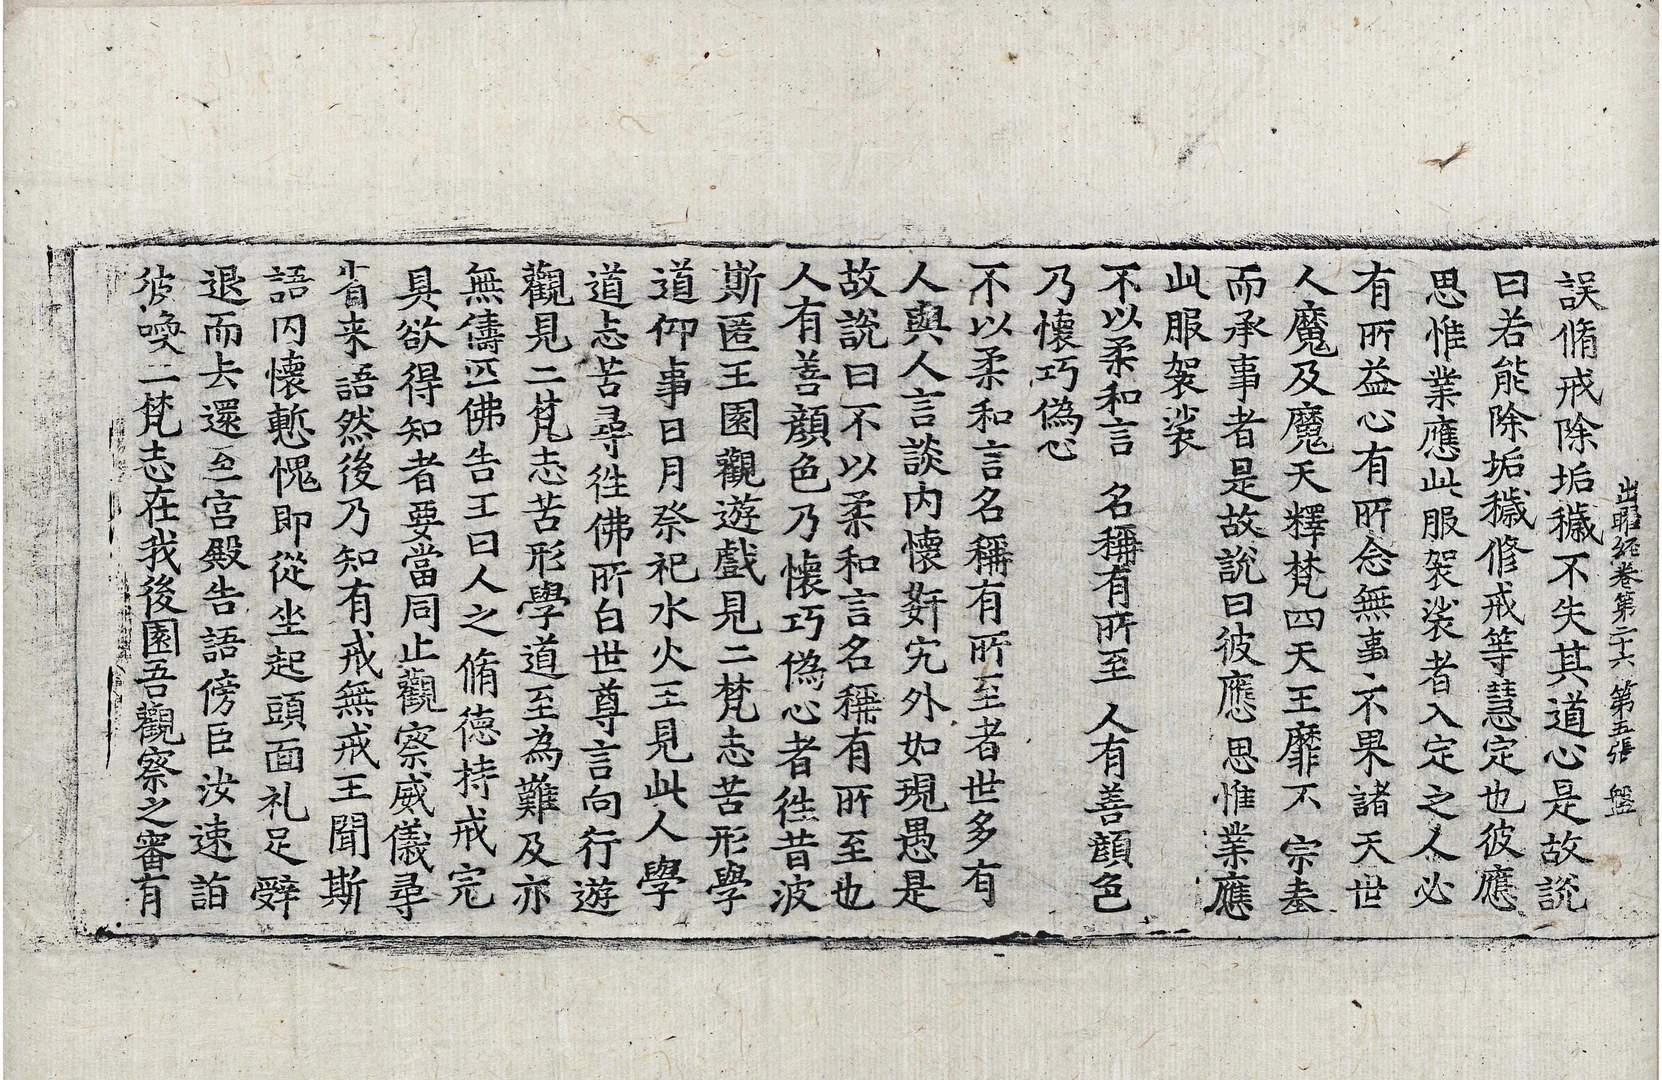 出曜經卷第二十六 第五張 盤
誤脩戒除垢穢不失其道心是故說
曰若能除垢穢修戒等慧定也彼應
思惟業應此服袈裟者入定之人必
有所益心有所念無事不果諸天世
人魔及魔天釋梵四天王靡不宗奉
而承事者是故說曰彼應思惟業應
此服袈裟
不以柔和言 名稱有所至 人有善顔色
乃懷巧偽心
不以柔和言名稱有所至者世多有
人與人言談内懷姧宄外如現愚是
故說曰不以柔和言名稱有所至也
人有善顔色乃懷巧偽心者徃昔波
斯匿王園觀遊戲見二梵志苦形學
道仰事日月祭祀水火王見此人學
道志苦尋徃佛所白世尊言向行遊
觀見二梵志苦形學道至為難及亦
無儔匹佛告王曰人之脩德持戒完
具欲得知者要當同止觀察威儀尋
省来語然後乃知有戒無戒王聞斯
語内懷慙愧即從坐起頭面礼足辤
退而去還至宮殿告語傍臣汝速詣
彼喚二梵志在我後園吾觀察之審有